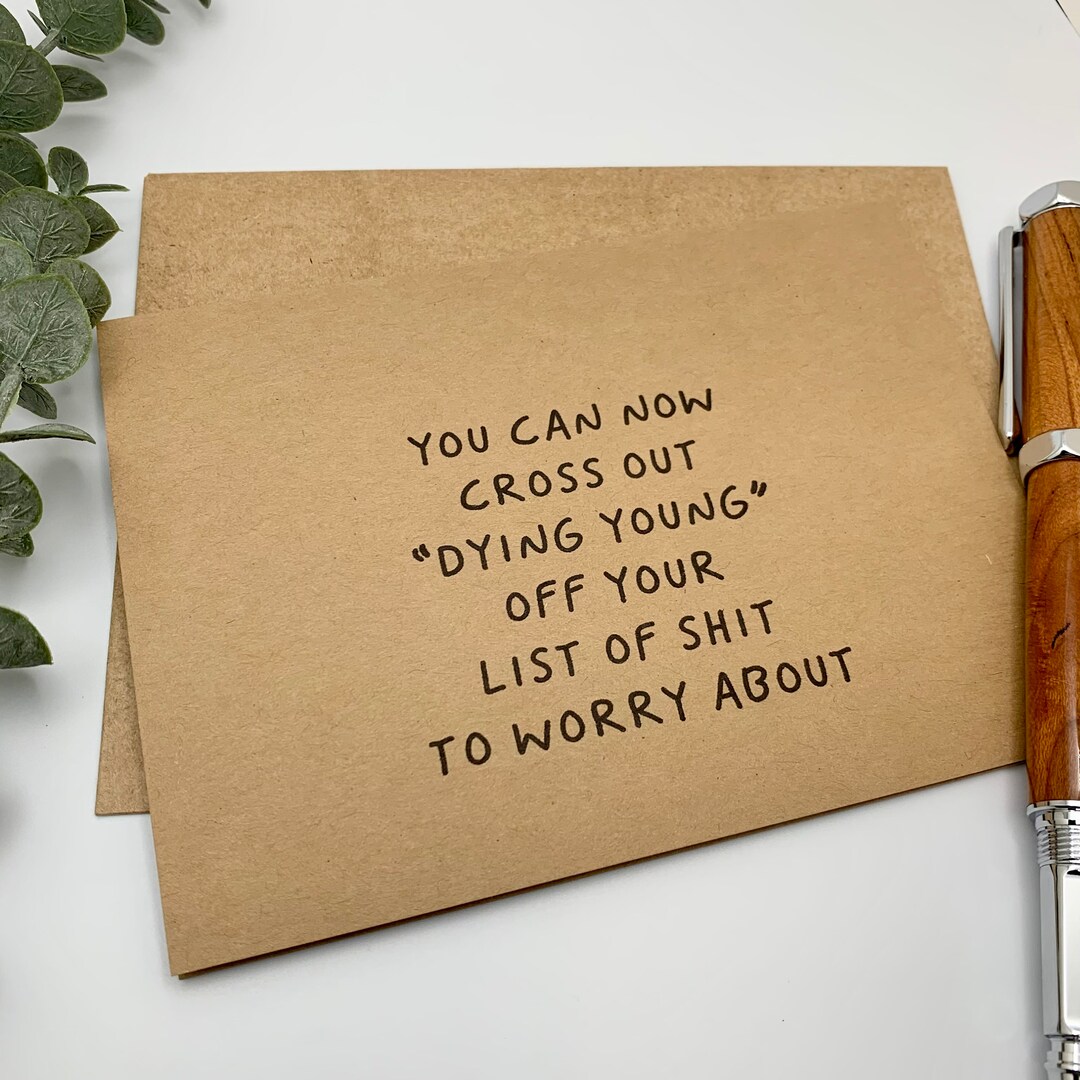 YOU CAN NOW
CROSS OUT
“DYING YOUNG”
OFF YOUR
LIST OF SHIT
TO WORRY ABOUT